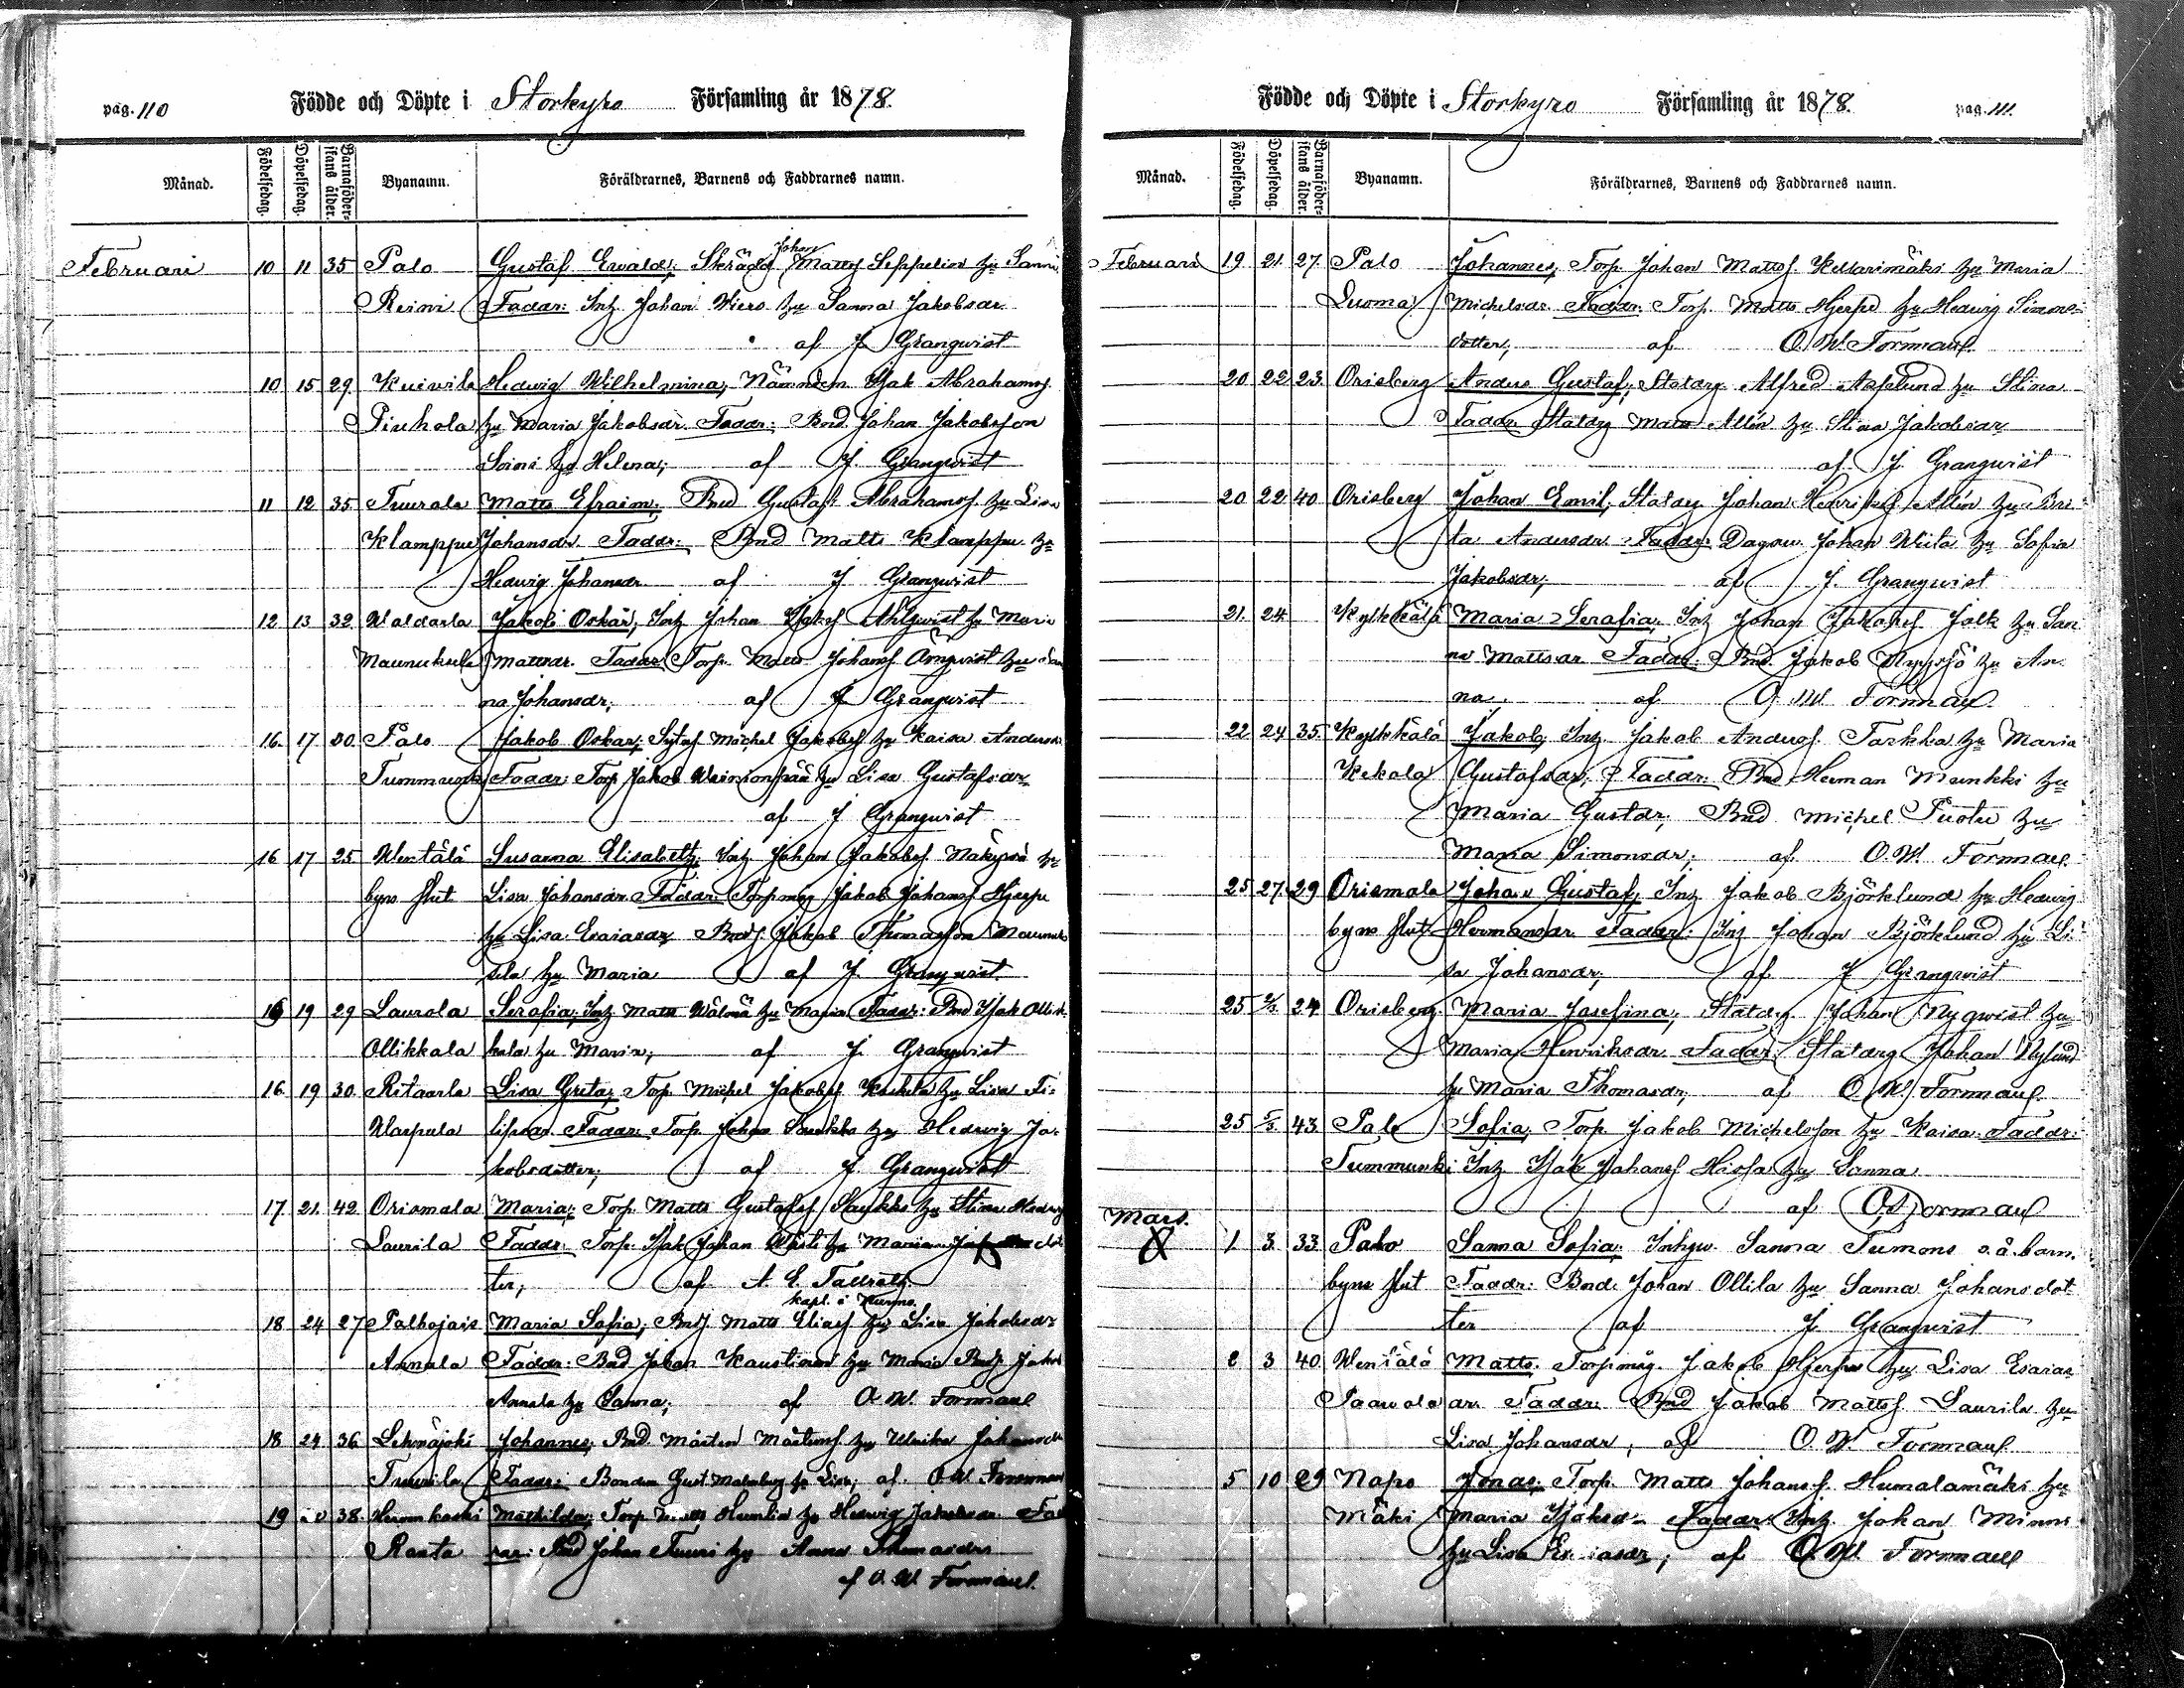 pag. 110 Födde och Döpte i Storkyro Församling år 1878.
Månad. Födelsedag. Döpelsedag. Barnaföderskans ålder. Byanamn. Föräldrarnes, Barnens och Faddrarnes namn.
Johan
Februari 10 11 35 Palo Gustaf Ewald; Skrädd Mattsf Seppelin hu Sanna
Reini Faddr: Inh Johan Wiero hu Sanna Jakobsdr
af J Granqwist
10 15 29 Kuivila Hedwig Wilhelmina; Nämndem Isak Abrahamsf
Piuhola hu Maria Jakobsdr Faddr: Bnd Johan Jakobsson
Soini hu Helena; af J. Granqwist
11 12 35 Tuurala Matts Efraim; Bnd Gustaf Abrahamsf hu Lisa
Klamppu Johansdr. Faddr: Bnd Matts Klamppu hu
Hedwig Johansdr af J Granqwist
12 13 32 Waldarla Jakob Oskar; Inh Johan Isaksf Ahlqwist hu Maria
Maunuksela Mattsdr. Faddr Torp. Matts Johansf hu
na Johansdr; af J Granqwist
16 17 30 Palo Jakob Oskar; Michel Jakobsf hu Kaisa Andersdr
Tummunki Faddr: Torp Jakob hu Lisa Gustafsdr
af J Granqwist
16 17 25 Wentälä Susanna Elisabeth; Inh Johan Jakobsf hu
byns slut Lisa Johansdr Faddr: Torpmåg Jakob Johansf Hjerpe
hu Lisa Esaiasdr Bnds Jakob Thomasson Maunuk
sela hu Maria af J. Granqwist
16 19 29 Laurola Serafia; Inh Matts Wälmä hu Maria Faddr: Bnd Isak Ollik
Ollikkala kala hu Maria; af J. Granqwist
16 19 30 Ritaarla Lisa Greta; Torp Michel Jakobsf hu Lisa Fi-
Warpula lipsdr. Faddr: Torp Johan hu Hedwig Ja-
kobsdotter; af J. Granqwist
17 21 42 Orismala Maria; Torp Matts Gustafsf Haukko hu Stina Hedwig
Laurila Faddr: Torp. Isak Johan hu Maria dot
ter; af
kapl. i Kurmo.
18 24 27 Palhojais Maria Sofia; Bnds Matts Eliasf hu Lisa Jakobsdr
Annala Faddr: Bnd Johan Kaustinen hu Maria Bnds Jakob
Annala hu Sanna; af O. W. Forsman
18 24 36 Lehmäjoki Johannes; Bnd. Mårten Mårtensf hu Ulrika Johansdr
Tuurila Faddr: Bonden Gust Malmberg hu Lisa; af O W. Forsman
19 38 Hevonkoski Mathilda; Torp Matts hu Hedwig Jakobsdr Fad
Ranta rar: Bnd Johan Tuuri hu Anna Thomasdr
af O. W. Forsman.
Födde och Döpte i Storkyro Församling år 1878. pag. 111.
Månad. Födelsedag. Döpelsedag. Barnaföderskans ålder. Byanamn. Föräldrarnes, Barnens och Faddrarnes namn.
Februari 19 21 27 Palo Johannes; Torp Johan Mattsf. Kellarimäki hu Maria
Luoma Michelsdr. Faddr. Torp. Matts Hjerpe hu Hedwig Simons-
dotter; af O. W. Forsman
20 22 23 Orisberg Anders Gustaf; Statdrg Alfred Asplund hu Stina
Faddr Statdrg Matts Allén hu Stina Jakobsdr
af J. Granqwist
20 22 40 Orisberg Johan Emil; Statdrg Johan Henriksf Allén hu Bri
ta Andersdr Faddr Dagsv. Johan Wiita hu Sofia
Jakobsdr; af J. Granqwist
21 24 Kylkkälä Maria Serafia; Inh Johan Jakobsf Jalk hu San
na Mattsdr Faddr: Bnd. Jakob hu An-
na; af O. W Forsman
22 24 35 Kylkkälä Jakob; Inh Jakob Andersf. Tarkka hu Maria
Kekola Gustafsdr; Faddr: Bnd Herman Munkki hu
Maria Gustdr; Bnd Michel Tuotu hu
Maria Simonsdr; af O. W. Forsman
25 27 29 Orismala Johan Gustaf; Inh Jakob Björklund hu Hedwig
byns slut Hermansdr Faddr: Inh Johan Björklund hu Li-
sa Johansdr; af J Granqwist
25 2/3 24 Orisberg Maria Josefina; Statdrg. Johan Nyqwist hu
Maria Henriksdr Faddr: Statdrg Johan Nylund
hu Maria Thomasdr; af O. W. Forsman
25 5/3 43 Palo Sofia; Torp Jakob Michelsson hu Kaisa. Faddr:
Tummunki Inh Isak Johansf Hissa hu Sanna
af O. Forsman
Mars.
X 1 3 33 Palo Sanna Sofia; Inhqv. Sanna Tumons o.ä. barn.
byns slut Faddr: Bnd. Johan Ollila hu Sanna Johansdot
ter af J. Granqwist
2 3 40 Wentälä Matts. Torpmåg. Jakob Hjerpe hu Lisa Esaias
Paawola dr. Faddr: Bnd Jakob Mattsf. Laurila hu
Lisa Johansdr; af O. W. Forsman
5 10 29 Napo Jonas; Torp. Matts Johansf. Humalamäki hu
Mäki Maria Isaksdr Faddr: Inh. Johan Minni
hu Lisa Esaiasdr; af O. W. Forsman